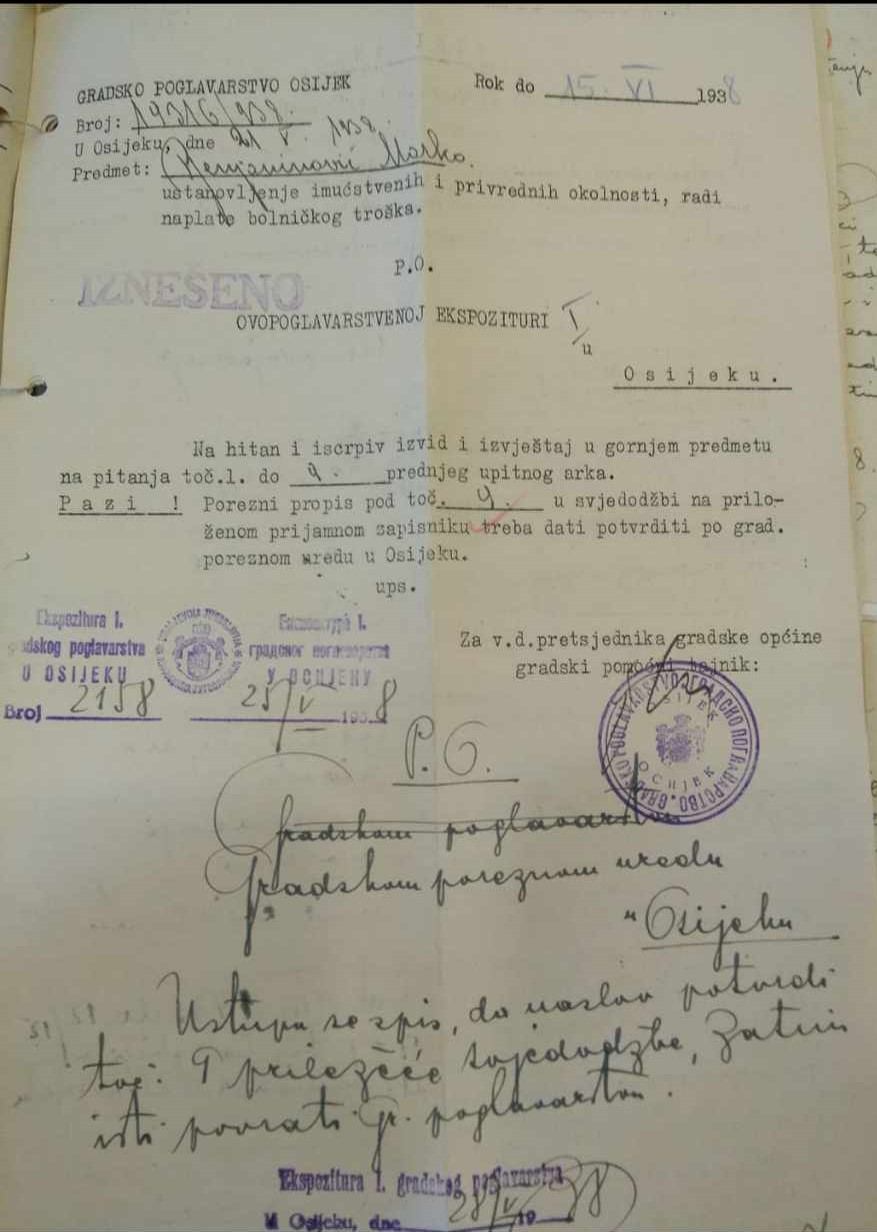 GRADSKO POGLAVARSTVO OSIJEK
Rok do 15. VI 1938
Broj: 19316/938.
U Osijeku, dne 21 V. 1938.
Predmet: Nemjaninović Marko.
ustanovljenje imućstvenih i privrednih okolnosti, radi
naplate bolničkog troška.
P.O.
IZNEŠENO
OVOPOGLAVARSTVENOJ EKSPOZITURI I
u
Osijeku.
Na hitan i iscrpiv izvid i izvještaj u gornjem predmetu
na pitanja toč.l. do 9. prednjeg upitnog arka.
Pazi ! Porezni propis pod toč. 9. u svjedodžbi na prilo-
ženom prijamnom zapisniku treba dati potvrditi po grad.
poreznom uredu u Osijeku.
ups.
Ekspozitura I.
gradskog poglavarstva
U OSIJEKU
Експозитура I.
градског поглаварства
У ОСИЈЕКУ
Broj 2158 25/V 1938
Za v.d.pretsjednika gradske općine
gradski pomoćni tajnik:
GRADSKO POGLAVARSTVO
OSIJEK
ГРАДСКО ПОГЛАВАРСТВО
ОСИЈЕК
P.O.
Gradskom poglavarstvu
Gradskom poreznom uredu
u Osijeku
Ustupa se spis, da naslov potvrdi
toč. 9 priležeće svjedodžbe, zatim
isti povrati gr. poglavarstvu.
Ekspozitura I. gradskog poglavarstva
U Osijeku, dne 28/V 1938